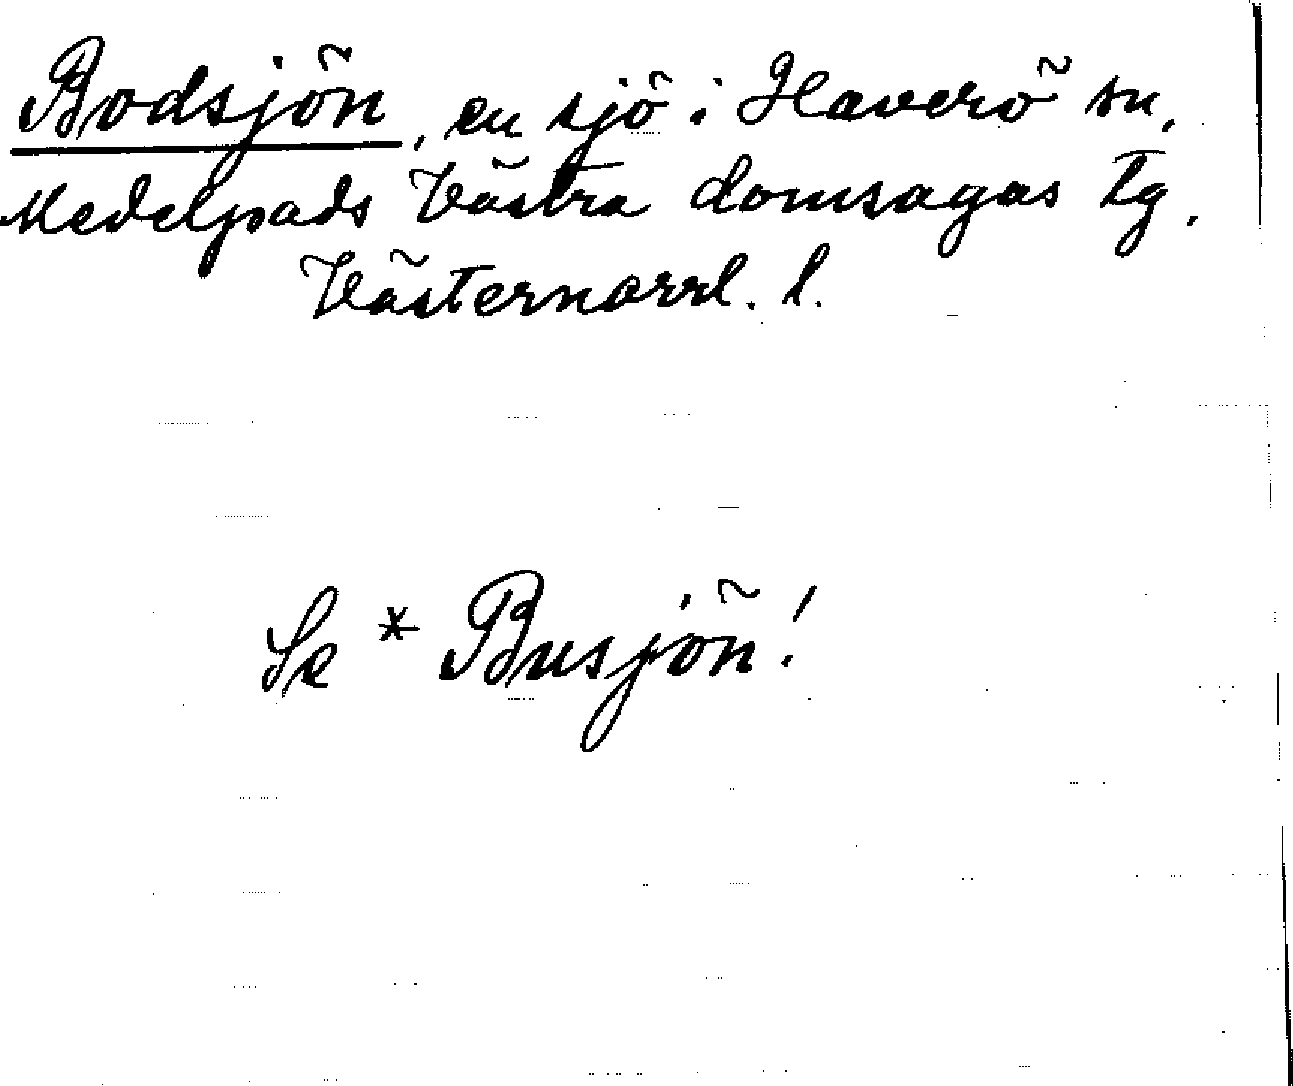 Bodsjön, en sjö i Haverö sn,
Medelpads Västra domsagas tg,
Västernorrl. l.
Se * Busjön!